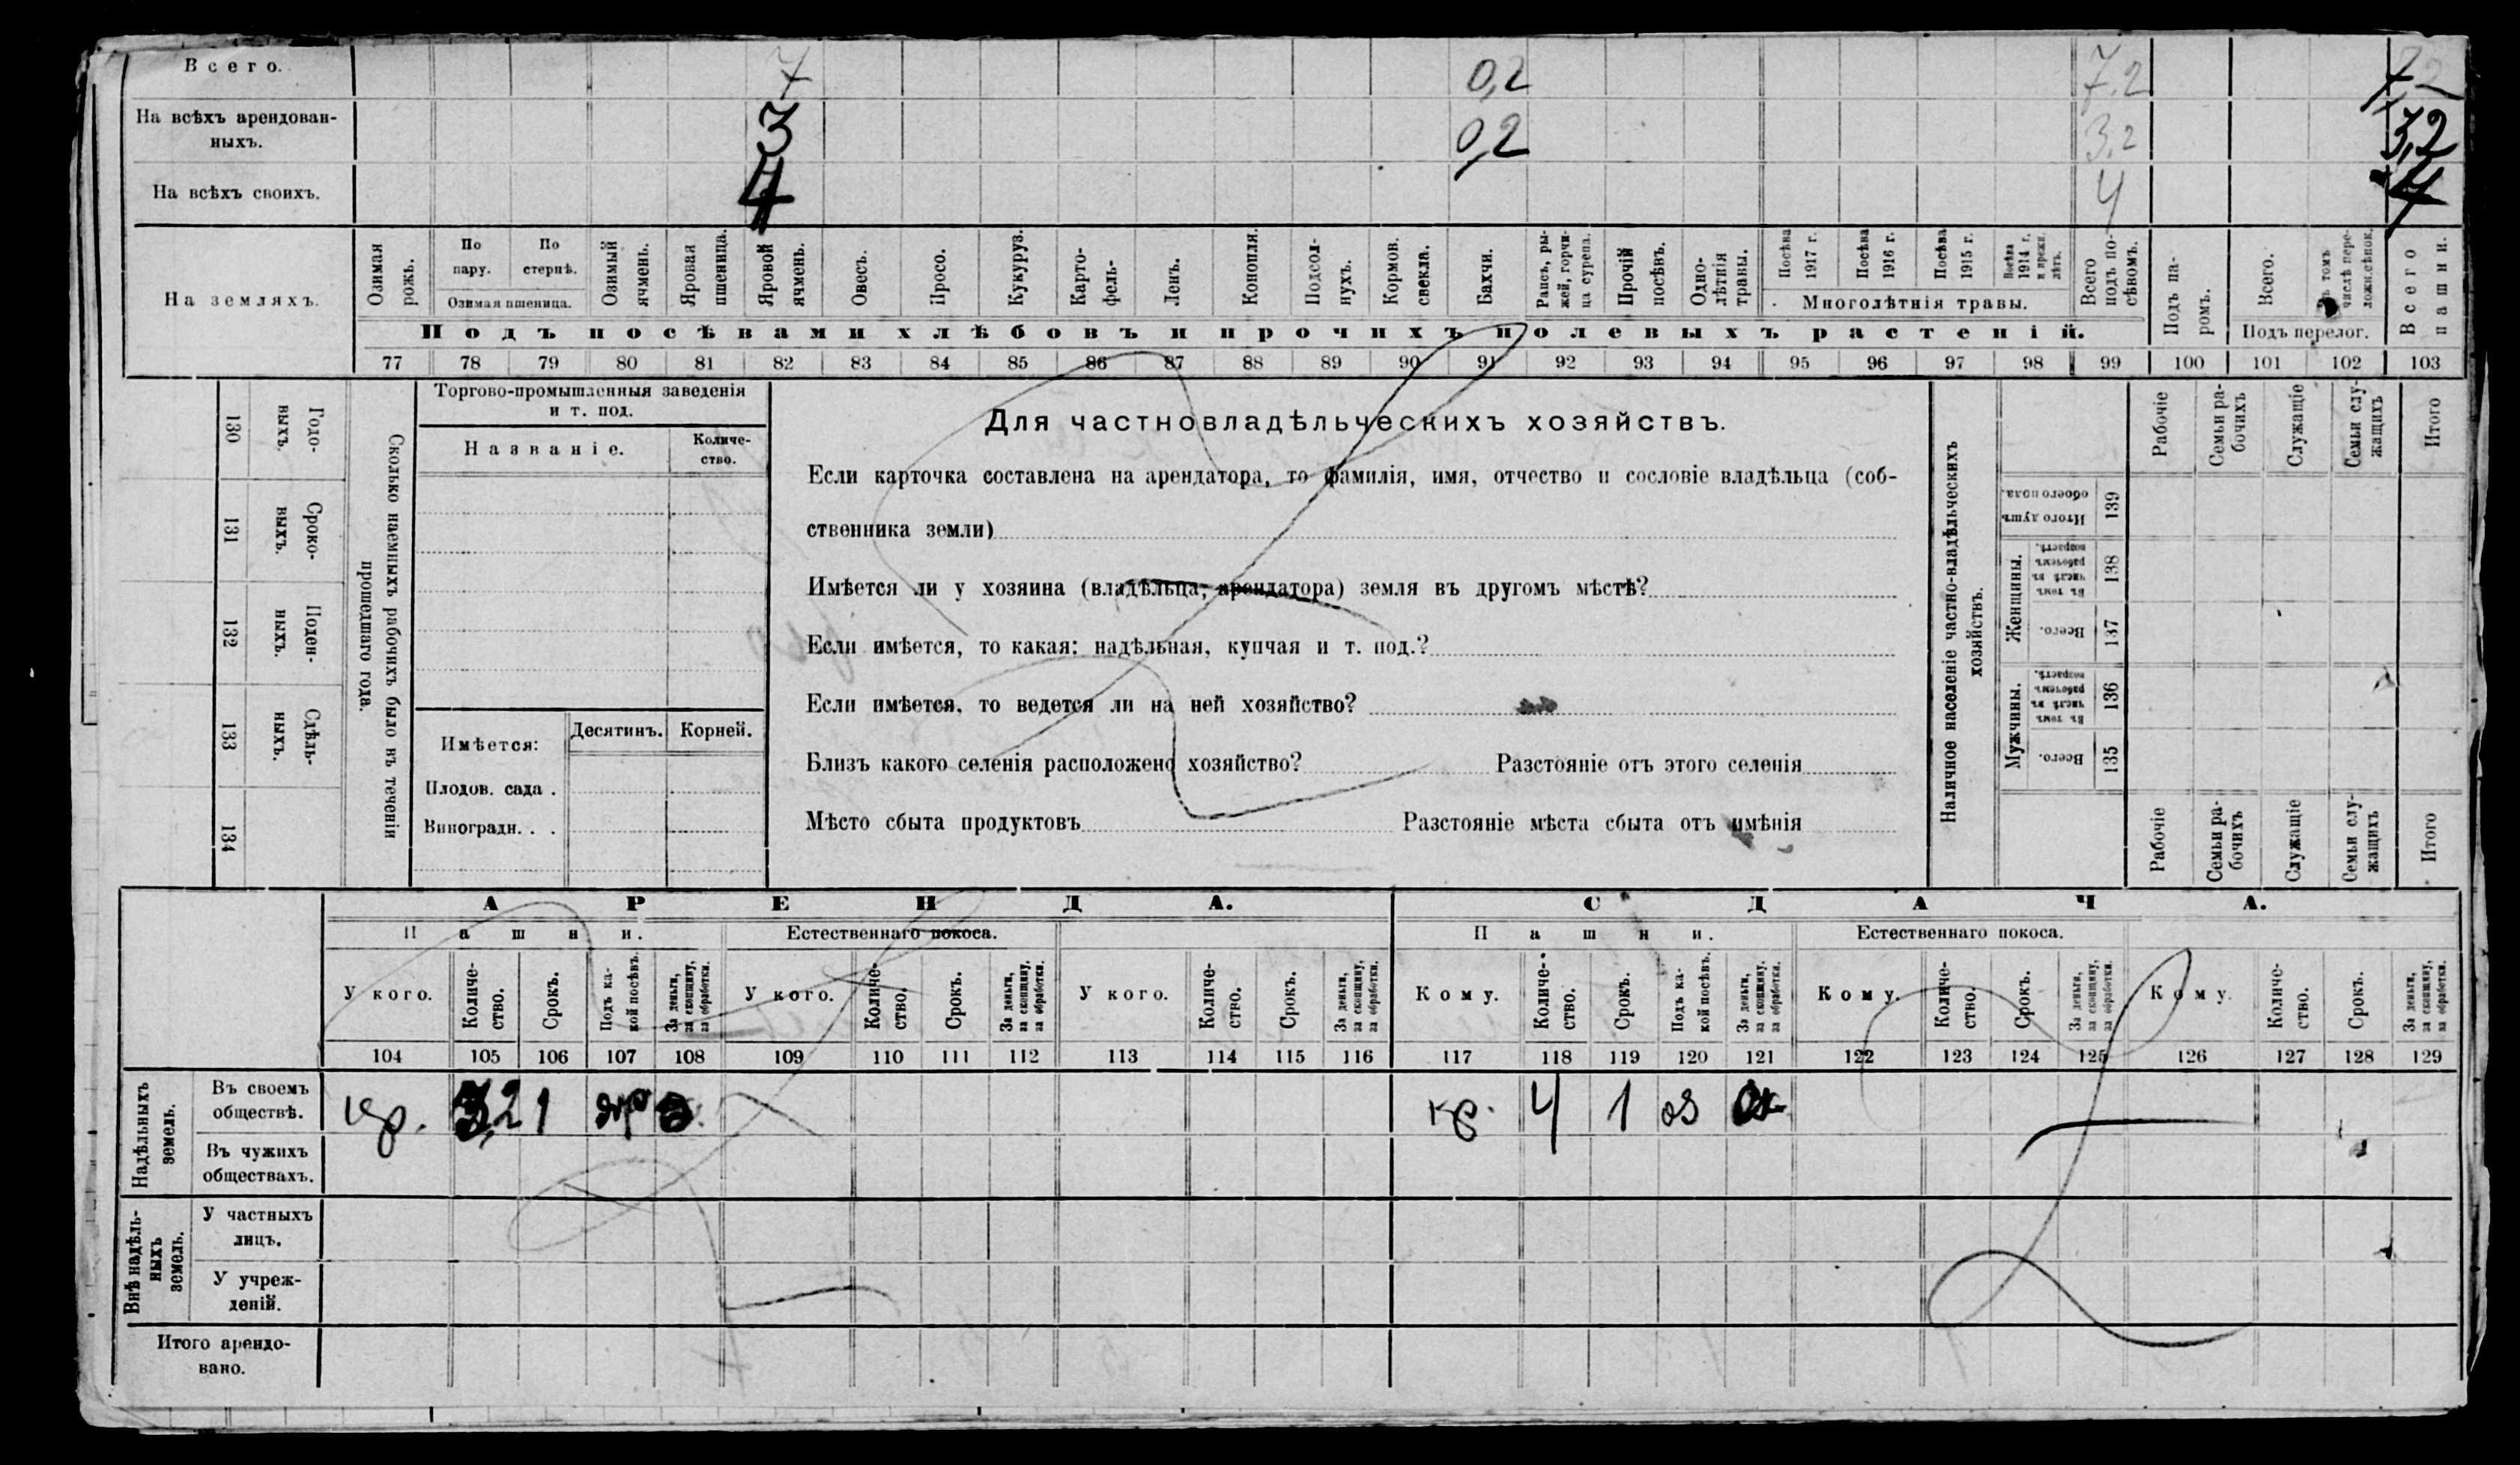 Всего. 7 0,2 7,2 7,2
На всѣхъ арендован-
ныхъ. 3 0,2 3,2 3,2
На всѣхъ своихъ. 4 4 4
На земляхъ.
Озимая рожь.
По пару.
По стернѣ.
Озимая пшеница.
Озимый ячмень.
Яровая пшеница.
Яровой ячмень.
Овесъ.
Просо.
Кукуруз.
Карто-
фель-
Ленъ.
Конопля.
Подсол-
нухъ.
Кормов.
свекла.
Бахчи.
Рапсъ, ры-
жей, горчи-
ца сурепа.
Прочій
посѣвъ.
Одно-
лѣтнія
травы.
Посѣва
1917 г.
Посѣва
1916 г.
Посѣва
1915 г.
Посѣва
1914 г.
и прежн.
лѣтъ.
Многолѣтнія травы.
Всего
подъ по-
сѣвомъ.
Подъ посѣвами хлѣбовъ и прочихъ полевыхъ растеній.
Подъ па-
ромъ.
Всего.
Въ томъ
числѣ пере-
ложн.сѣнок.
Подъ перелог.
Всего
пашни.
77 78 79 80 81 82 83 84 85 86 87 88 89 90 91 92 93 94 95 96 97 98 99 100 101 102 103
130 Годо-
ныхъ.
131 Сроко-
ныхъ.
132 Поден-
ныхъ.
133 Сдѣль-
ныхъ.
134
Сколько наемныхъ рабочихъ было въ теченіи
прошедшаго года.
Торгово-промышленныя заведенія
и т. под.
Названіе.
Количе-
ство.
Имѣется:
Десятинъ. Корней.
Плодов. сада .
Виноградн. . .
Для частновладѣльческихъ хозяйствъ.
Если карточка составлена на арендатора, то фамилія, имя, отчество и сословіе владѣльца (соб-
ственника земли)
Имѣется ли у хозяина (владѣльца, арендатора) земля въ другомъ мѣстѣ?
Если имѣется, то какая: надѣльная, купчая и т. под.?
Если имѣется, то ведется ли на ней хозяйство?
Близъ какого селенія расположено хозяйство? Разстояніе отъ этого селенія
Мѣсто сбыта продуктовъ Разстояніе мѣста сбыта отъ имѣнія
Наличное населеніе частно-владѣльческихъ
хозяйствъ.
Рабочіе
Семьи ра-
бочихъ
Служащіе
Семьи слу-
жащихъ
Итого
Итого душъ
обоего пола.
139
Женщины.
Въ томъ
числѣ въ
рабочемъ
возрастѣ.
138
Всего.
137
Мужчины.
Въ томъ
числѣ въ
рабочемъ
возрастѣ.
136
Всего.
135
Рабочіе
Семьи ра-
бочихъ
Служащіе
Семьи слу-
жащихъ
Итого
АРЕНДА. СДАЧА.
Пашни. Естественнаго покоса. Пашни. Естественнаго покоса.
У кого.
Количе-
ство.
Срокъ.
Подъ ка-
кой посѣвъ.
За деньги,
за скопщину,
за обработки.
У кого.
Количе-
ство.
Срокъ.
За деньги,
за скопщину,
за обработки.
У кого.
Количе-
ство.
Срокъ.
За деньги,
за скопщину,
за обработки.
Кому.
Количе-
ство.
Срокъ.
Подъ ка-
кой посѣвъ.
За деньги,
за скопщину,
за обработки.
Кому.
Количе-
ство.
Срокъ.
За деньги,
за скопщину,
за обработки.
Кому.
Количе-
ство.
Срокъ.
За деньги,
за скопщину,
за обработки.
104 105 106 107 108 109 110 111 112 113 114 115 116 117 118 119 120 121 122 123 124 125 126 127 128 129
Надѣльныхъ
земель.
Въ своемъ
обществѣ.
кр. 3,2 1 яр кр. 4 1 оз
Въ чужихъ
обществахъ.
Внѣ надѣль-
ныхъ
земель.
У частныхъ
лицъ.
У учреж-
деній.
Итого арендо-
вано.